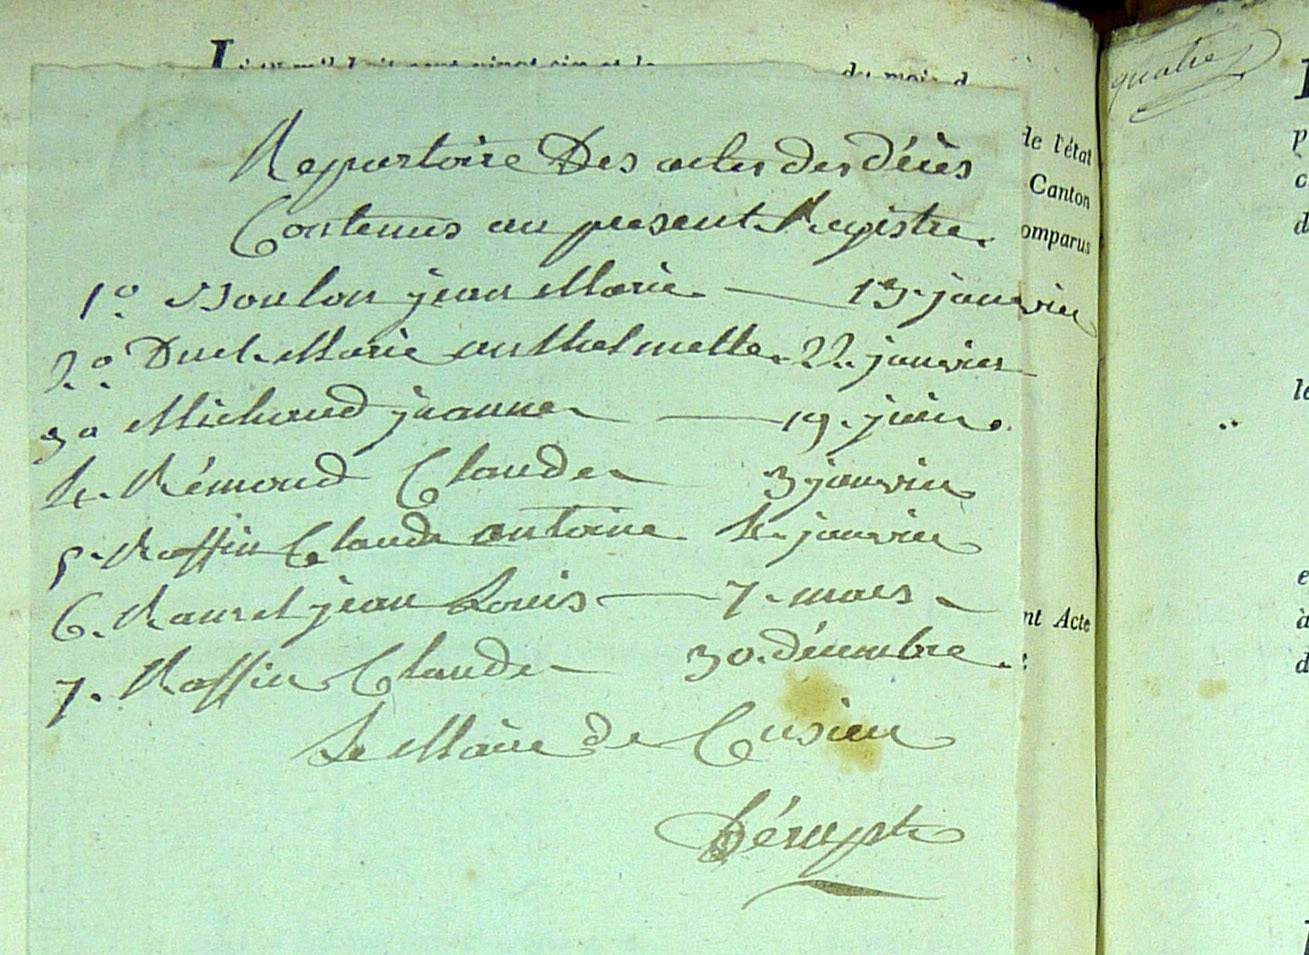 quatre
de l'état
Canton
omparus
Reppertoire Des actes des Décès
Contenus au present Registre.
1° Boulon jean Marie 13. janvier
2° Duel Marie anthelmette 22. janvier
3° Michaud jeanne 19. juin.
4. Rémond Claude 3 janvier
5. Roffin Claude antoine 4. janvier
6. Ravret jean Louis 7. mars
7. Roffin Claude 30. décembre.
nt Acte
Le Maire de Cusieu